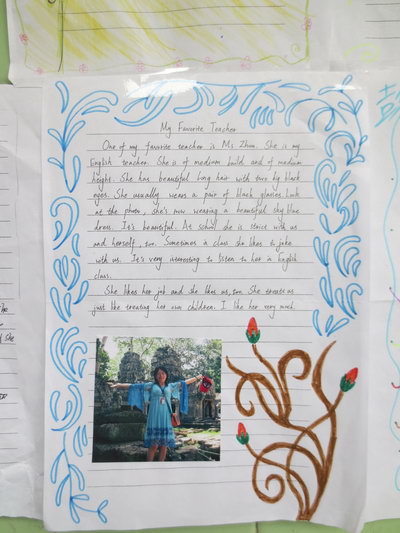 My Favorite Teacher
One of my favorite teacher is Ms Zhou. She is my
English teacher. She is of medium build and of medium
height. She has beautiful long hair with two big black
eyes. She usually wears a pair of black glasses. Look
at the photo, she's now wearing a beautiful sky blue
dress. It's beautiful. At school she is strict with us
and herself, too. Sometimes in class she likes to joke
with us. It's very interesting to listen to her in English
class.
She likes her job and she likes us, too. She treats us
just like treating her own children. I like her very much.